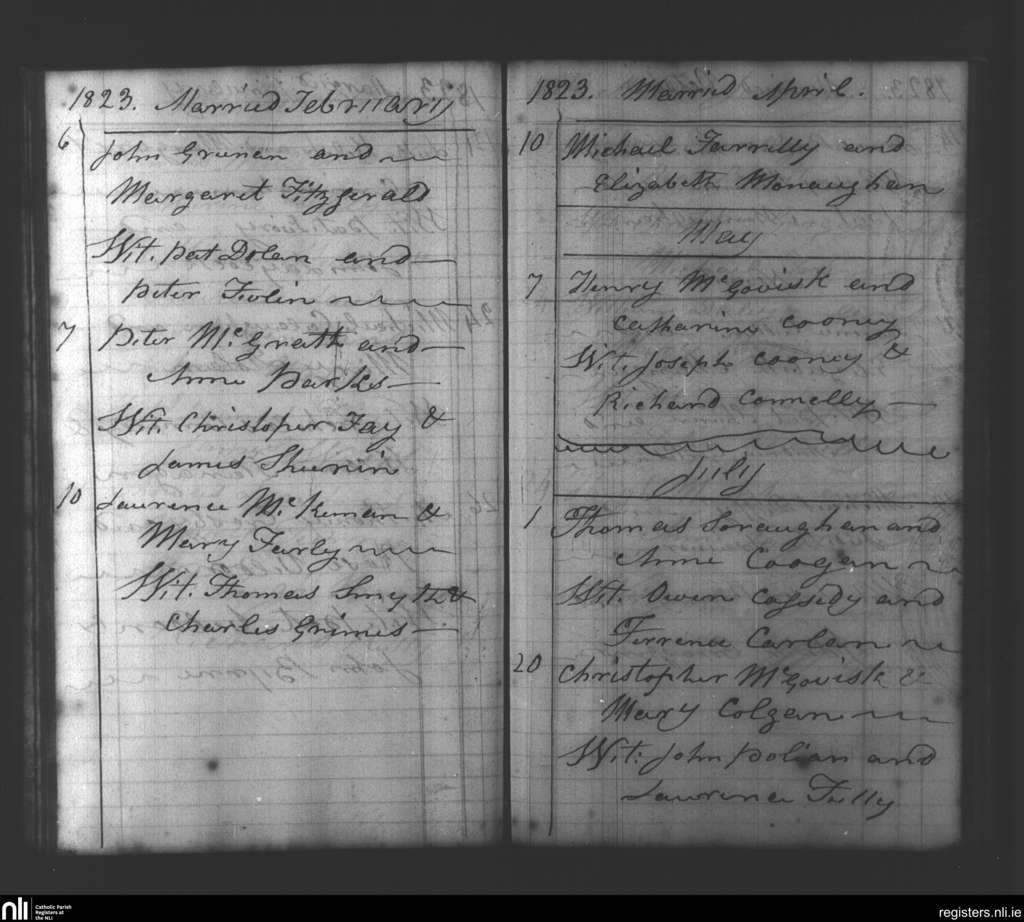 1823. Married February
6 John Grunan and
Margaret Fitzgerald
Wit. Pat Dolan and
Peter Tivlin
7 Peter McGrath and
Anne Parks
Wit. Christopher Fay &
James Sheenin
10 Lawrence McKernan &
Mary Farly
Wit. Thomas Smyth &
Charles Grimes
1823. Married April.
10 Michael Farrelly and
Elizabeth Monaughan
May
7 Henry McGovisk and
Catharine Cooney
Wit. Joseph Cooney &
Richard Connelly
July
1 Thomas Soraughan and
Anne Coogan
Wit. Owen Cassidy and
Terrence Carlan
20 Christopher McGovisk &
Mary Colgan
Wit: John Dolian and
Lawrence Tully
nli
Catholic Parish
Registers at
the NLI
registers.nli.ie